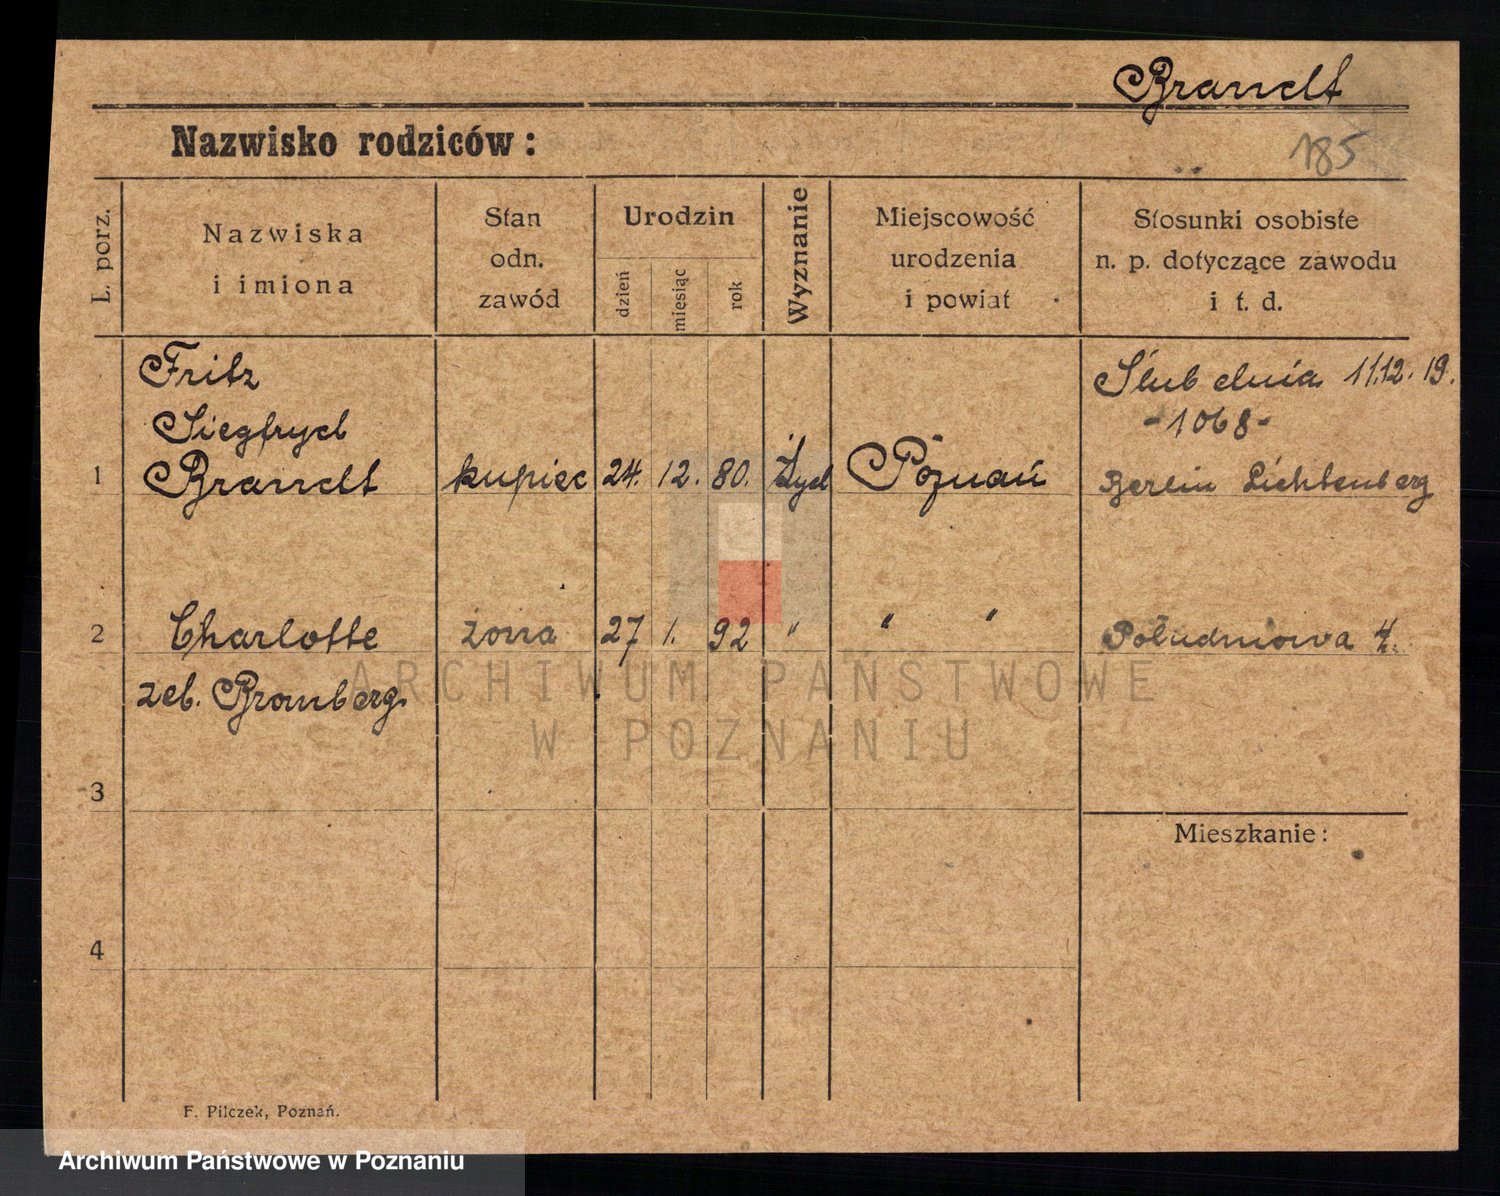 Brandt
Nazwisko rodziców:
185
L. porz.
Nazwiska
i imiona
Stan
odn.
zawód
Urodzin
dzień
miesiąc
rok
Wyznanie
Miejscowość
urodzenia
i powiat
Stosunki osobiste
n. p. dotyczące zawodu
i t. d.
Fritz
Siegfryd
1 Brandt kupiec 24. 12. 80. Żyd Poznań
Ślub dnia 11.12.19.
-1068-
Berlin Lichtenberg
2 Charlotte żona 27 1. 92 " " " Południowa 4.
zeb. Bromberg.
ARCHIWUM PAŃSTWOWE
W POZNANIU
3
Mieszkanie:
4
F. Pilczek, Poznań.
Archiwum Państwowe w Poznaniu